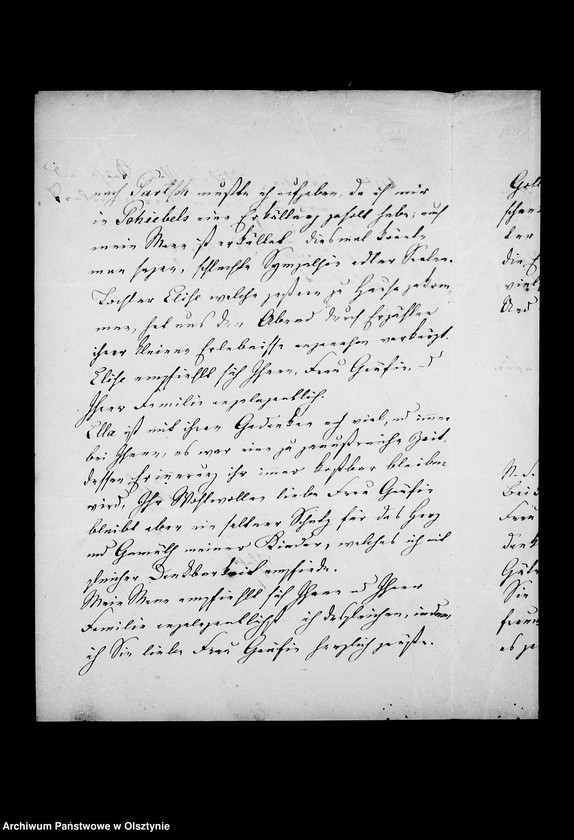 nach Tarlsk mußte ich aufgeben, da ich mir
in Schiebels eine Erkältung geholt habe; auch
mein Mann ist erkältet diesmal könnte
man sagen, schlechte Sympathie edler Seelen.
Tochter Elise welche gestern zu Hause gekom
men, hat uns den Abend durch Erzählen
ihrer kleinen Erlebnisse angenehm verkürzt.
Elise empfiehlt sich Ihnen, Frau Gräfin, u
Ihrer Familie angelegentlich.
Ella ist mit ihren Gedanken noch viel, und immer
bei Ihnen, es war eine zu genußreiche Zeit,
dessen Erinnerung ihr immer kostbar bleiben
wird, Ihr Wohlwollen liebe Frau Gräfin
bleibt aber ein seltener Schatz für das Herz
und Gemüth meiner Kinder, welches ich mit
gleicher Dankbarkeit empfinde.
Mein Mann empfiehlt sich Ihnen und Ihrer
Familie angelegentlichst ich desgleichen, indem
ich Sie liebe Frau Gräfin herzlich grüße.
die
viel
Und
N. S.
bei
Frau
Sie